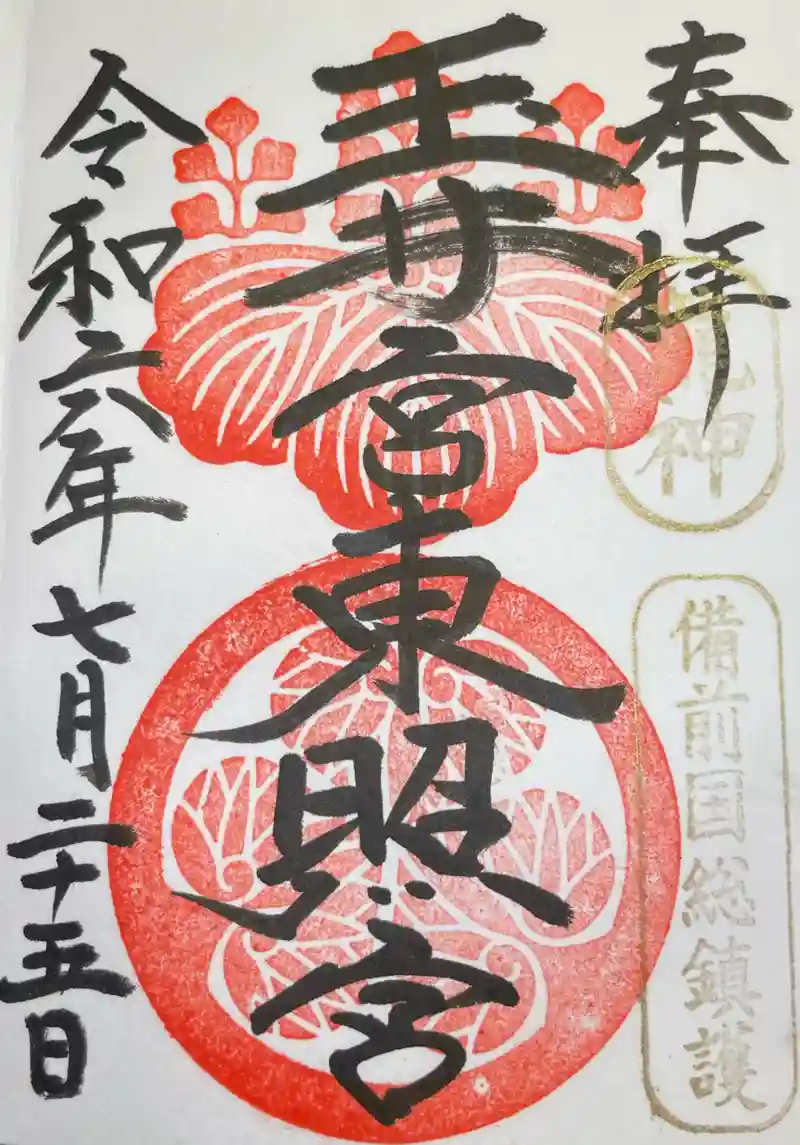 奉拝
神
備前国総鎮護
玉井宮東照宮
令和六年七月二十五日